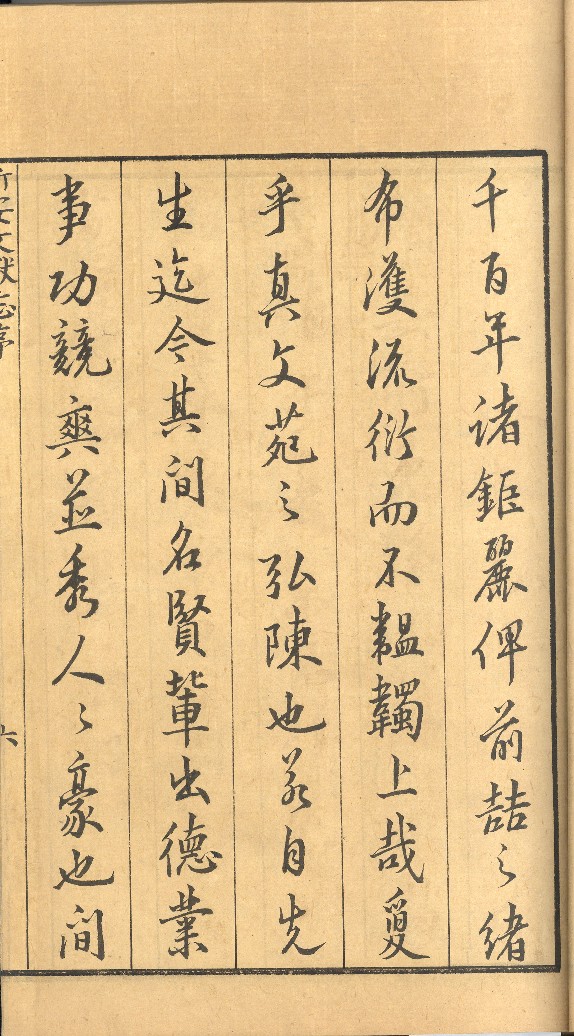 千百年諸鉅麗俾前喆之緒
布濩流衍而不韞韣上哉敻
乎真文苑之弘陳也若自先
生迄今其間名賢輩出德業
事功競爽並秀人〻豪也間
新安文獻志序 六